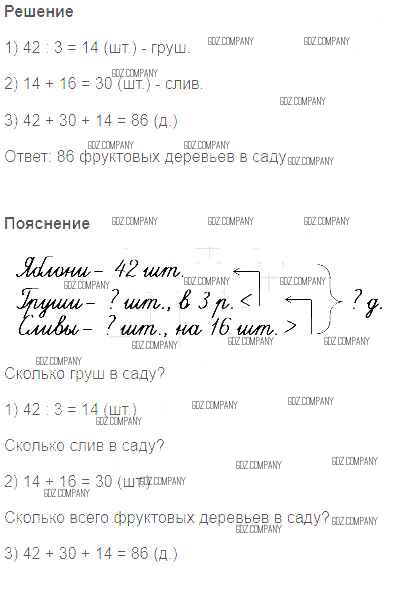 Решение
GDZ.COMPANY GDZ.COMPANY
1) 42 : 3 = 14 (шт.) - груш.
GDZ.COMPANY
2) 14 + 16 = 30 (шт.) - слив.
GDZ.COMPANY
3) 42 + 30 + 14 = 86 (д.)
GDZ.COMPANY GDZ.COMPANY
Ответ: 86 фруктовых деревьев в саду
GDZ.COMPANY
Пояснение GDZ.COMPANY GDZ.COMPANY GDZ.COMPANY
Яблони – 42 шт.
GDZ.COMPANY GDZ.COMPANY GDZ.COMPANY
Груши – ? шт., в 3 р. < ? д.
Сливы – ? шт., на 16 шт. >
GDZ.COMPANY GDZ.COMPANY GDZ.COMPANY
GDZ.COMPANY
Сколько груш в саду?
GDZ.COMPANY GDZ.COMPANY
1) 42 : 3 = 14 (шт.)
GDZ.COMPANY
Сколько слив в саду?
GDZ.COMPANY GDZ.COMPANY
2) 14 + 16 = 30 (шт.)
GDZ.COMPANY
GDZ.COMPANY
Сколько всего фруктовых деревьев в саду?
GDZ.COMPANY
GDZ.COMPANY
3) 42 + 30 + 14 = 86 (д.)